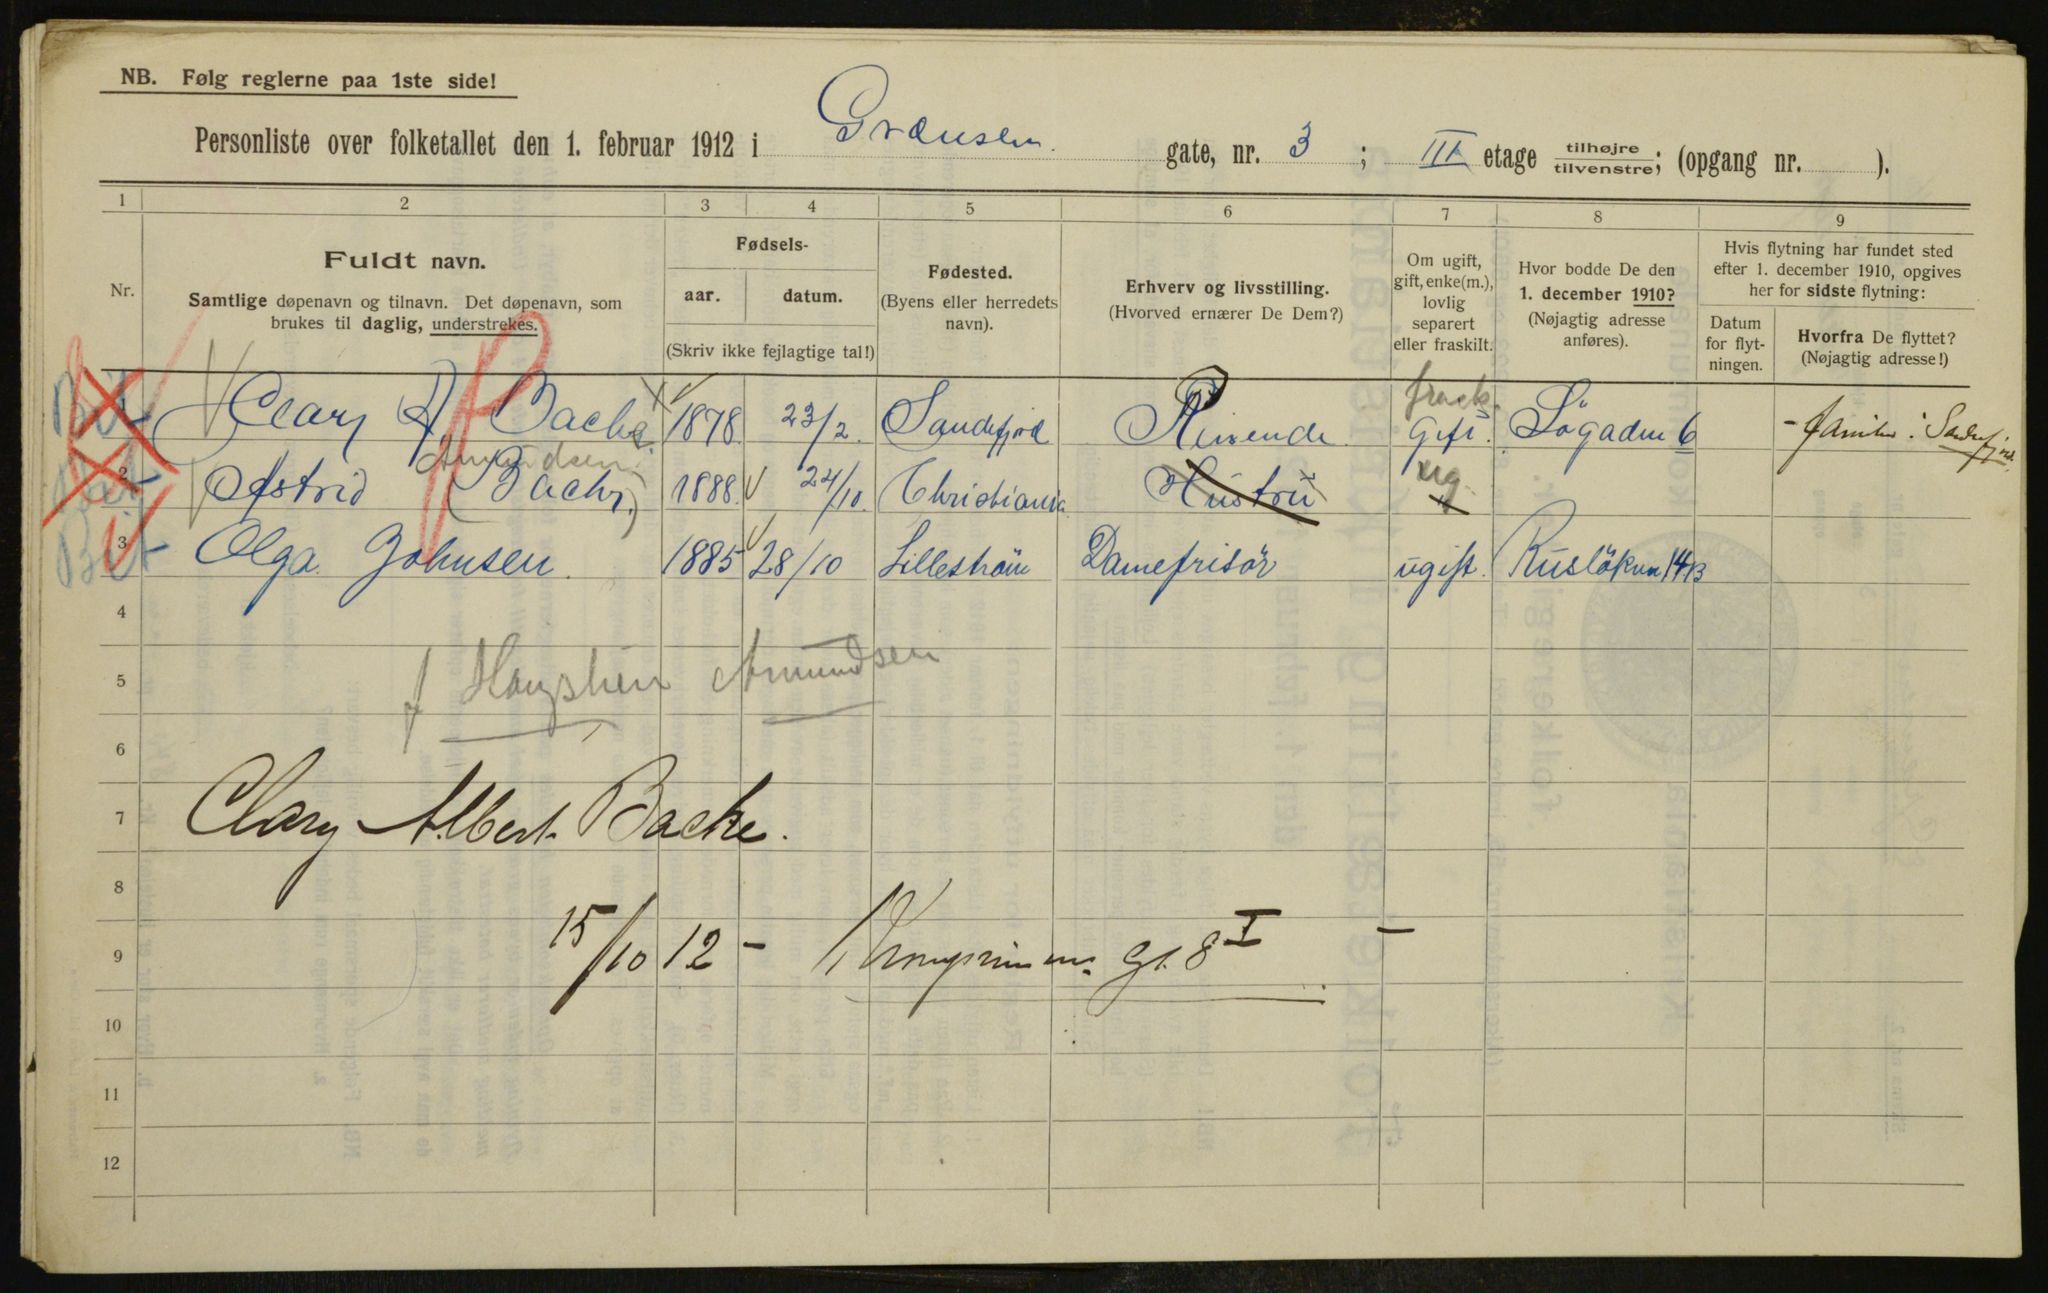 NB. Følg reglerne paa 1ste side!
Personliste over folketallet den 1. februar 1912 i Grænsen gate, nr. 3 ; III etage tilhøjre tilvenstre; (opgang nr. ).
1 2 3 4 5 6 7 8 9
Nr.
Fuldt navn.
Samtlige døpenavn og tilnavn. Det døpenavn, som
brukes til daglig, understrekes.
Fødsels-
aar. datum.
(Skriv ikke fejlagtige tal!)
Fødested.
(Byens eller herredets
navn).
Erhverv og livsstilling.
(Hvorved ernærer De Dem?)
Om ugift,
gift, enke(m.),
lovlig
separert
eller fraskilt.
Hvor bodde De den
1. december 1910?
(Nøjagtig adresse
anføres).
Hvis flytning har fundet sted
efter 1. december 1910, opgives
her for sidste flytning:
Datum
for flyt-
ningen.
Hvorfra De flyttet?
(Nøjagtig adresse!)
1 Clary A. Backe 1878 23/2. Sandefjord Reisende Gift. Søgaden 6 - familie i Sandefjord
Amundsen
2 Astrid (Backe) 1888 24/10. Christiania Hustru ug
3 Olga Johnsen. 1885 28/10 Lillestrøm Damefrisör ugift. Ruslökven 14B
4
5 Amundsen
6
7 Clary Albert Backe.
8
9 15/10 12 - Kronprinsens gt. 8 I -
10
11
12